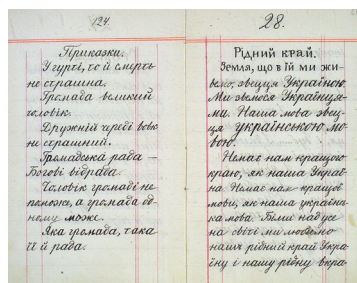 127.
Приказки.
У гурті, то й смерть
не страшна.
Громада великий
чоловік.
Дружній череді вовк
не страшний.
Громадська рада —
Богові відрада.
Чоловік громаді не
поможе, а громада од-
ному може.
Яка громада, така
її й рада.
28.
Рідний край.
Земля, що в їй ми жи-
вемо, звецця Україною.
Ми звемося Українця-
ми. Наша мова звец-
ця українською мо-
вою.
Немає нам кращого
краю, як наша Украї-
на. Немає нам кращої
мови, як наша українсь-
ка мова. Більш над усе
на світі ми любімо
наш рідний край Укра-
їну і нашу рідну вкра-